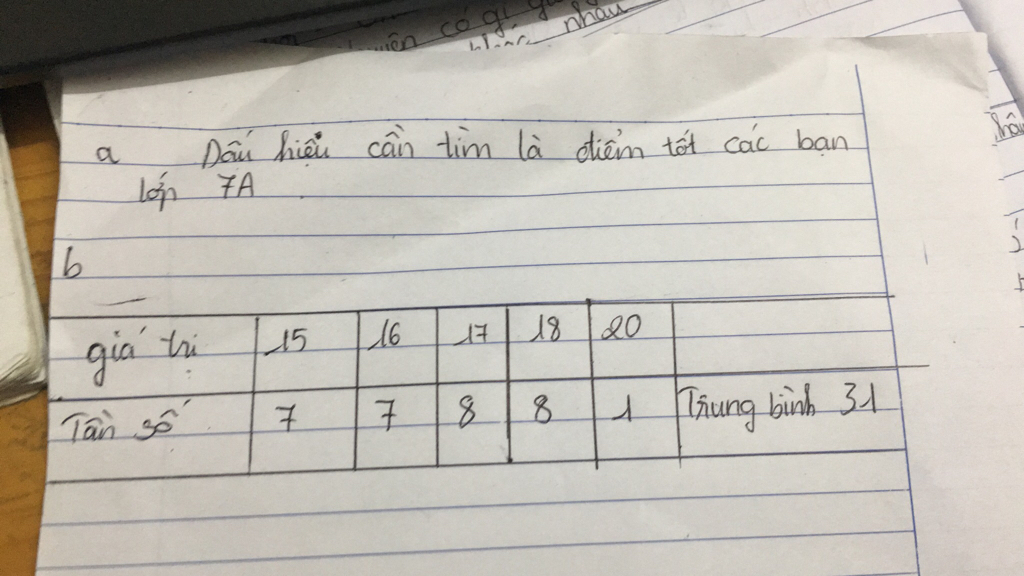 uyện có gì
khác nhau
a Dấu hiệu cần tìm là điểm tốt các bạn
lớp 7A
b
giá trị 15 16 17 18 20
Tần số 7 7 8 8 1 Trung bình 31